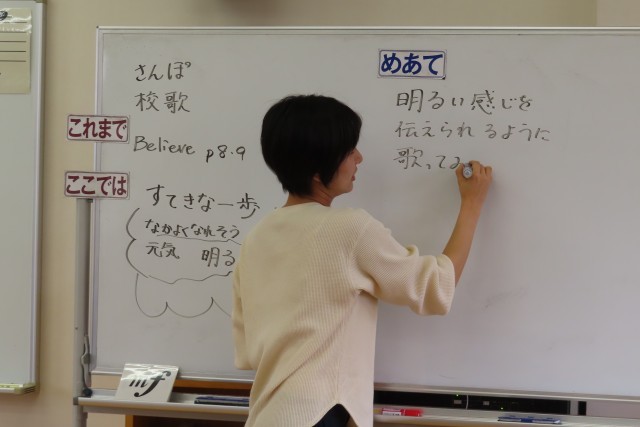 さんぽ
校歌
これまで
Believe p8.9
ここでは
すてきな一歩
なかよくなれそう
元気 明る
mf
めあて
明るい感じを
伝えられるように
歌って